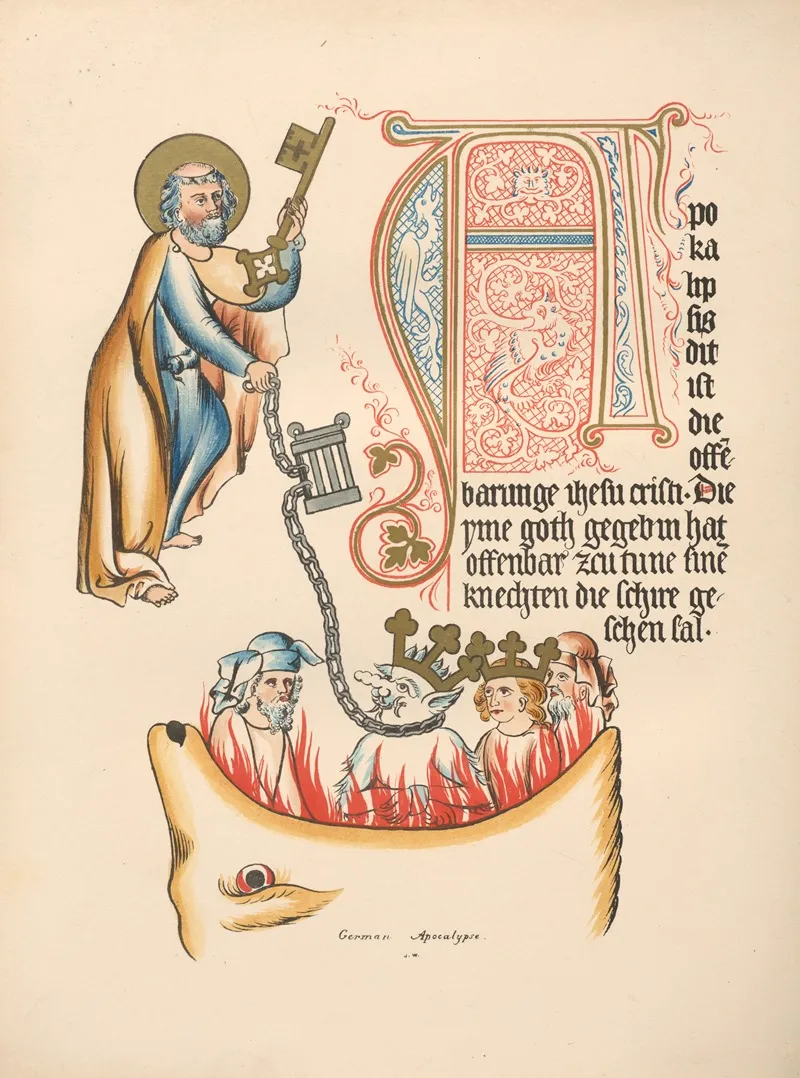 A
po
ka
lip
ſis
dit
iſt
die
offē-
barunge iheſu criſti· Die
yme goth gegebin hat
offenbar zcu tune ſinē
knechten die ſchire ge-
ſchen ſal·
German Apocalypse.
J. W.